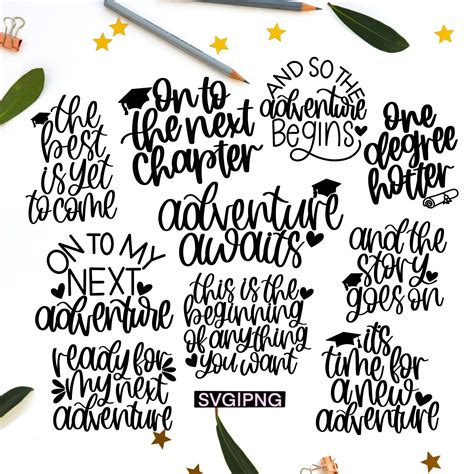 the
best
is yet
to come
on to
the next
chapter
AND SO THE
adventure
BEGINS
one
degree
hotter
adventure
awaits
ON TO MY
NEXT
adventure
this is the
beginning
of anything
you want
and the
story
goes on
ready for
my next
adventure
it's
time for
a new
adventure
SVG|PNG